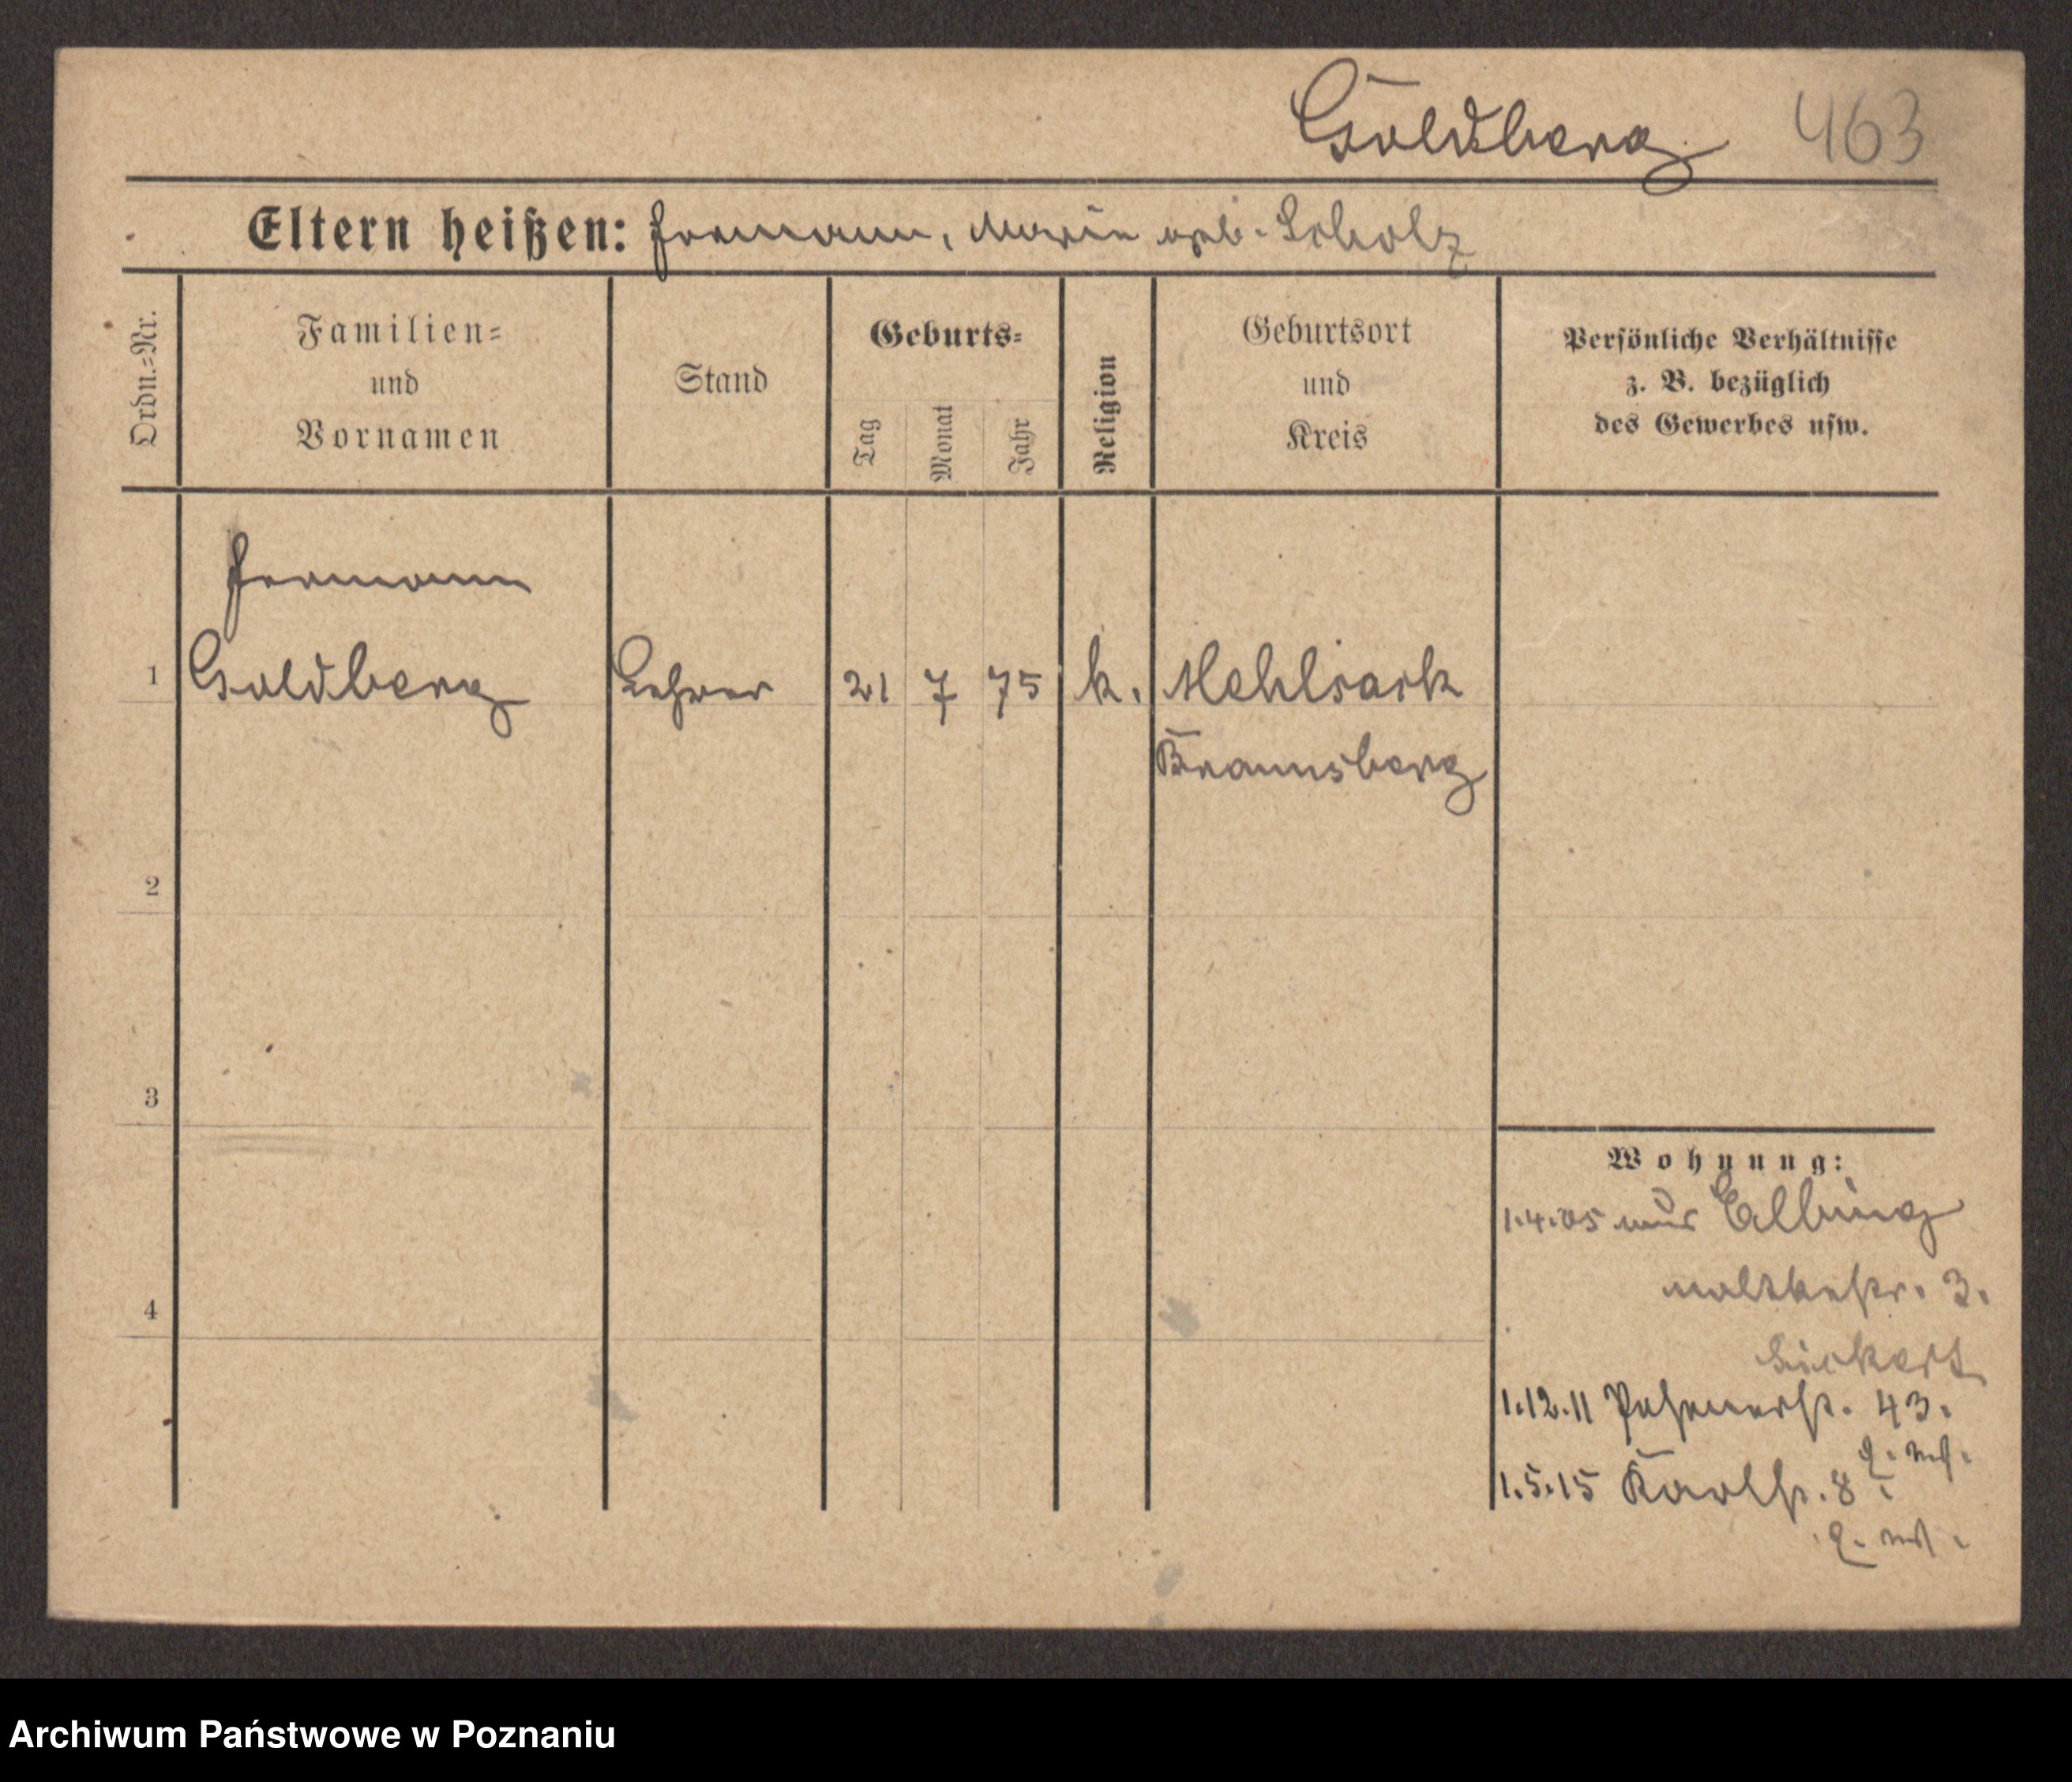 Goldberg 463
Eltern heißen: Hermann, Marie geb. Scholz
Ordn.=Nr.
Familien=
und
Vornamen
Stand
Geburts=
Tag
Monat
Jahr
Religion
Geburtsort
und
Kreis
Persönliche Verhältnisse
z. B. bezüglich
des Gewerbes usw.
Hermann
1 Goldberg Lehrer 21 7 75 k. Mehlsack
Braunsberg
2
3
4
Wohnung:
1.4.05 aus Elbing
Moltkestr. 3.
1.12.11 Posenerstr. 43.
1.5.15 Karlstr. 8.
Archiwum Państwowe w Poznaniu